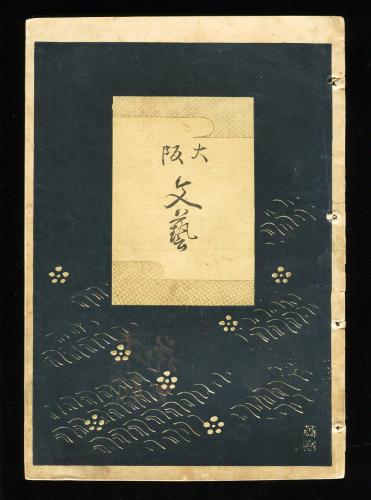 大阪
文藝